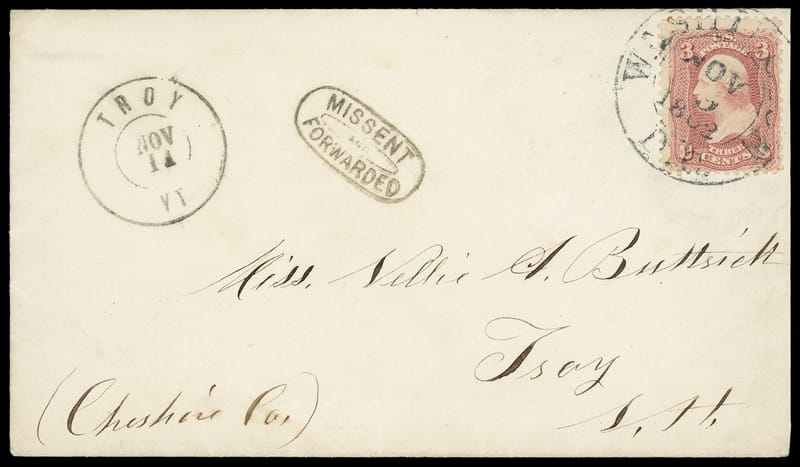 TROY
NOV
11
VT
MISSENT
AND
FORWARDED
U.S.
3 POSTAGE 3
THREE
CENTS
NOV
1862
Miss. Nellie A. Buttrick
Troy
N. H.
(Cheshire Co.)